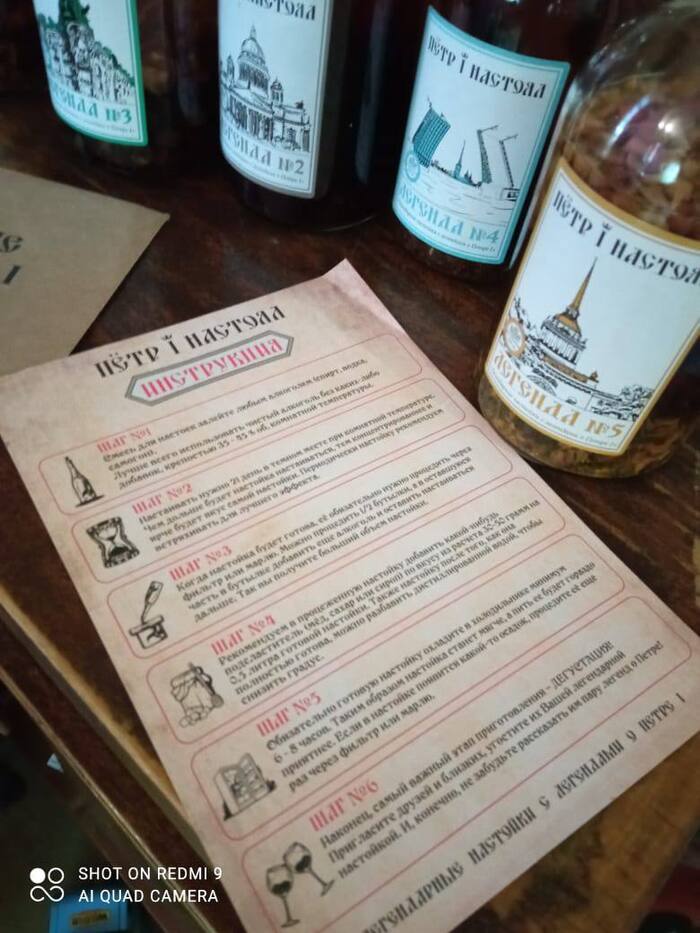 ПЁТР I НАСТОЯЛ
ЛЕГЕНДА №3
ЛЕГЕНДА №2
ПЁТР I НАСТОЯЛ
ЛЕГЕНДА №4
ПЁТР I НАСТОЯЛ
ЛЕГЕНДА №5
ПЁТР I НАСТОЯЛ
ИНСТРУКЦИЯ
ШАГ №1
Смесь для настоек залейте любым алкоголем (спирт, водка,
самогон).
Лучше всего использовать чистый алкоголь без каких-либо
добавок, крепостью 35 - 55 % об. комнатной температуры.
ШАГ №2
Настаивать нужно 21 день в темном месте при комнатной температуре.
Чем дольше будет настойка настаиваться, тем концентрированнее и
ярче будет вкус самой настойки. Периодически настойку рекомендуем
встряхивать для лучшего эффекта.
ШАГ №3
Когда настойка будет готова, её обязательно нужно процедить через
фильтр или марлю. Можно процедить 1/2 бутылки, а в оставшуюся
часть в бутылке добавить еще алкоголь и оставить настаиваться
дальше. Так вы получите больший объем настойки.
ШАГ №4
Рекомендуем в процеженную настойку добавить какой-нибудь
подсластитель (мёд, сахар или сироп) по вкусу из расчета 25-50 грамм на
0,5 литра готовой настойки. Также настойку после того, как она
полностью готова, можно разбавить дистиллированной водой, чтобы
снизить градус.
ШАГ №5
Обязательно готовую настойку охладите в холодильнике минимум
6 - 8 часов. Таким образом настойка станет мягче, а пить ее будет гораздо
приятнее. Если в настойке появится какой-то осадок, процедите её еще
раз через фильтр или марлю.
ШАГ №6
Наконец, самый важный этап приготовления - ДЕГУСТАЦИЯ!
Пригласите друзей и близких, угостите их Вашей легендарной
настойкой. И, конечно, не забудьте рассказать им пару легенд о Петре!
ЛЕГЕНДАРНЫЕ НАСТОЙКИ С ЛЕГЕНДАМИ О ПЕТРЕ I
SHOT ON REDMI 9
AI QUAD CAMERA